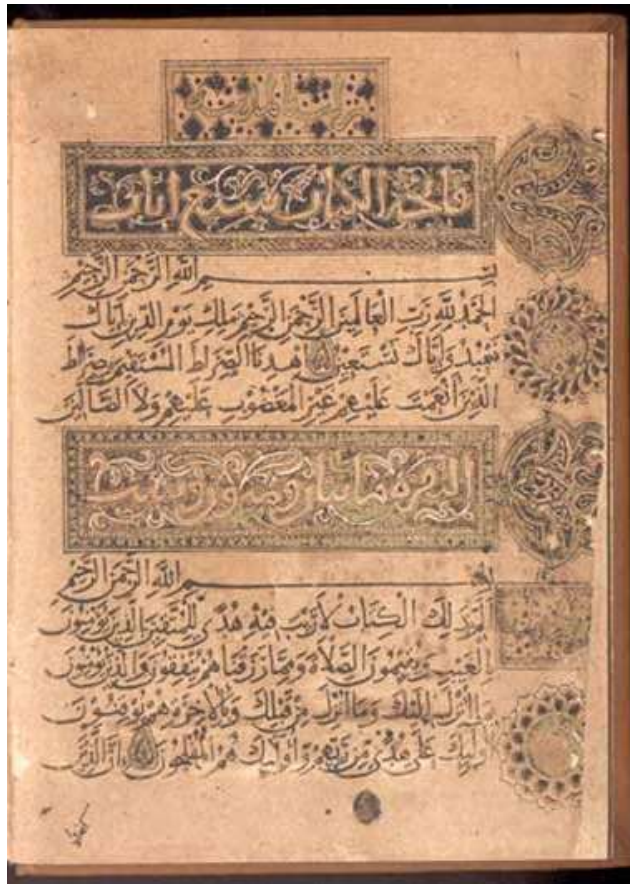 فاتحة الكتاب سبع ايات
بسم الله الرحمن الرحيم
الحمد لله رب العالمين الرحمن الرحيم ملك يوم الدين اياك
نعبد واياك نستعين اهدنا الصراط المستقيم صراط
الذين انعمت عليهم غير المغضوب عليهم ولا الضالين
البقرة مائتان وثمانون وست
بسم الله الرحمن الرحيم
الم ذلك الكتاب لا ريب فيه هدى للمتقين الذين يؤمنون
بالغيب ويقيمون الصلاة ومما رزقناهم ينفقون والذين يؤمنون
بما انزل اليك وما انزل من قبلك وبالآخرة هم يوقنون
اولئك على هدى من ربهم واولئك هم المفلحون ان الذين